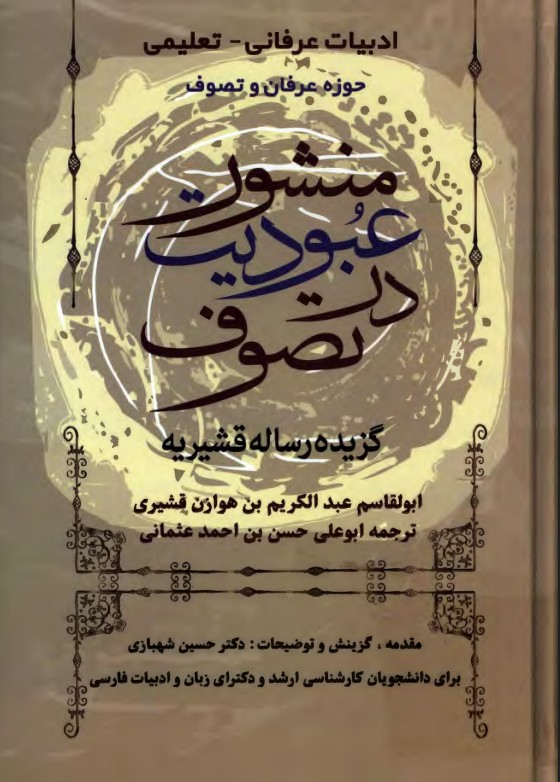 ادبیات عرفانی - تعلیمی
حوزه عرفان و تصوف
منشور
عبُودیت
در
تصوف
گزیده رساله قشیریه
ابولقاسم عبد الکریم بن هوازن قشیری
ترجمه ابوعلی حسن بن احمد عثمانی
مقدمه ، گزینش و توضیحات : دکتر حسین شهبازی
برای دانشجویان کارشناسی ارشد و دکترای زبان و ادبیات فارسی